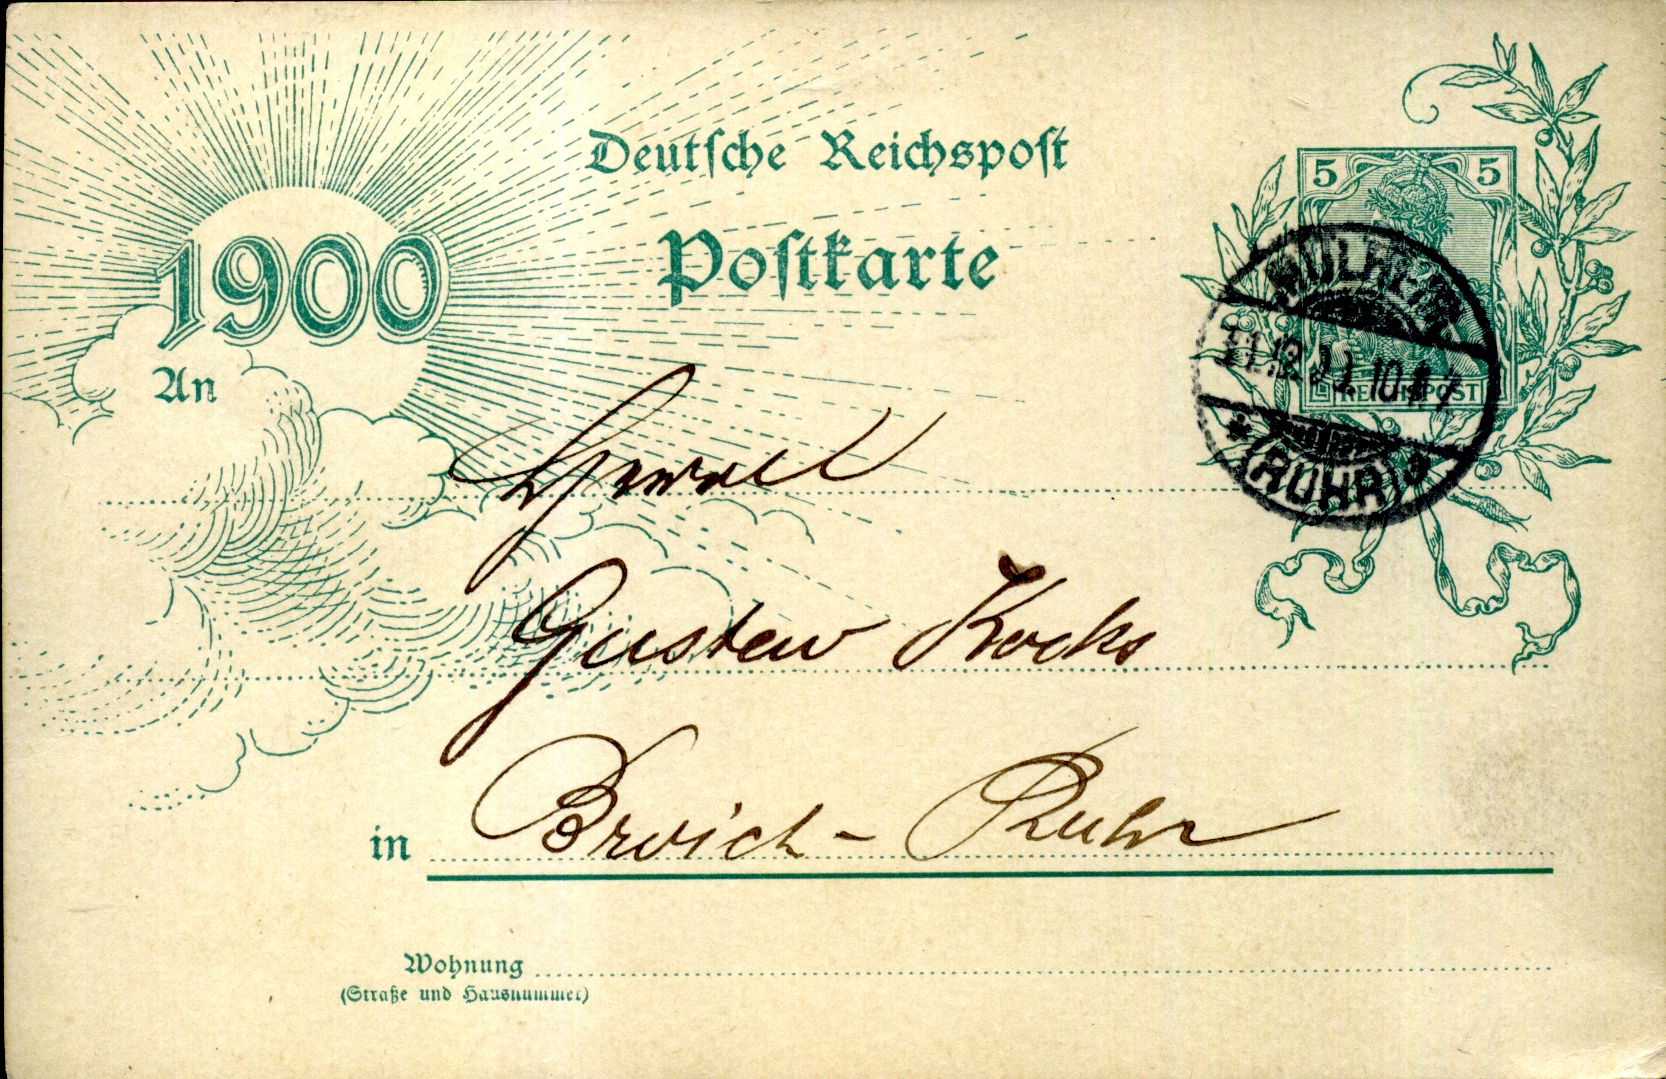 Deutsche Reichspost
Postkarte
1900
5 5
REICHSPOST
MÜLHEIM
(RUHR)
An
Herrn
Gustav Kocks
in Broich - Ruhr
Wohnung
(Straße und Hausnummer)